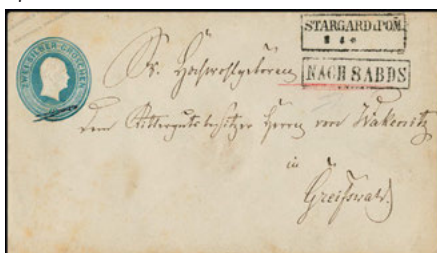 ZWEI SILBER GROSCHEN
STARGARD i. POM.
8 4 *
NACH 8 ABDS
Sr. Hochwohlgeboren
dem Rittergutsbesitzer Herrn von Wakenitz
in
Greifswald